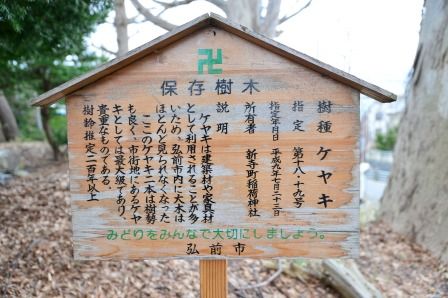 卍
保存樹木
樹種 ケヤキ
指定 第十八・十九号
指定年月日 平成九年七月二十三日
所有者 新寺町稲荷神社
説明
ケヤキは建築材や家具材
として利用されることが多
いため、弘前市内に大木は
ほとんど見られなくなった
ここのケヤキ二本は樹勢
も良く、市街地にあるケヤ
キとしては最大級であり、
貴重なものである
樹齢推定二百年以上
みどりをみんなで大切にしましょう。
弘前市